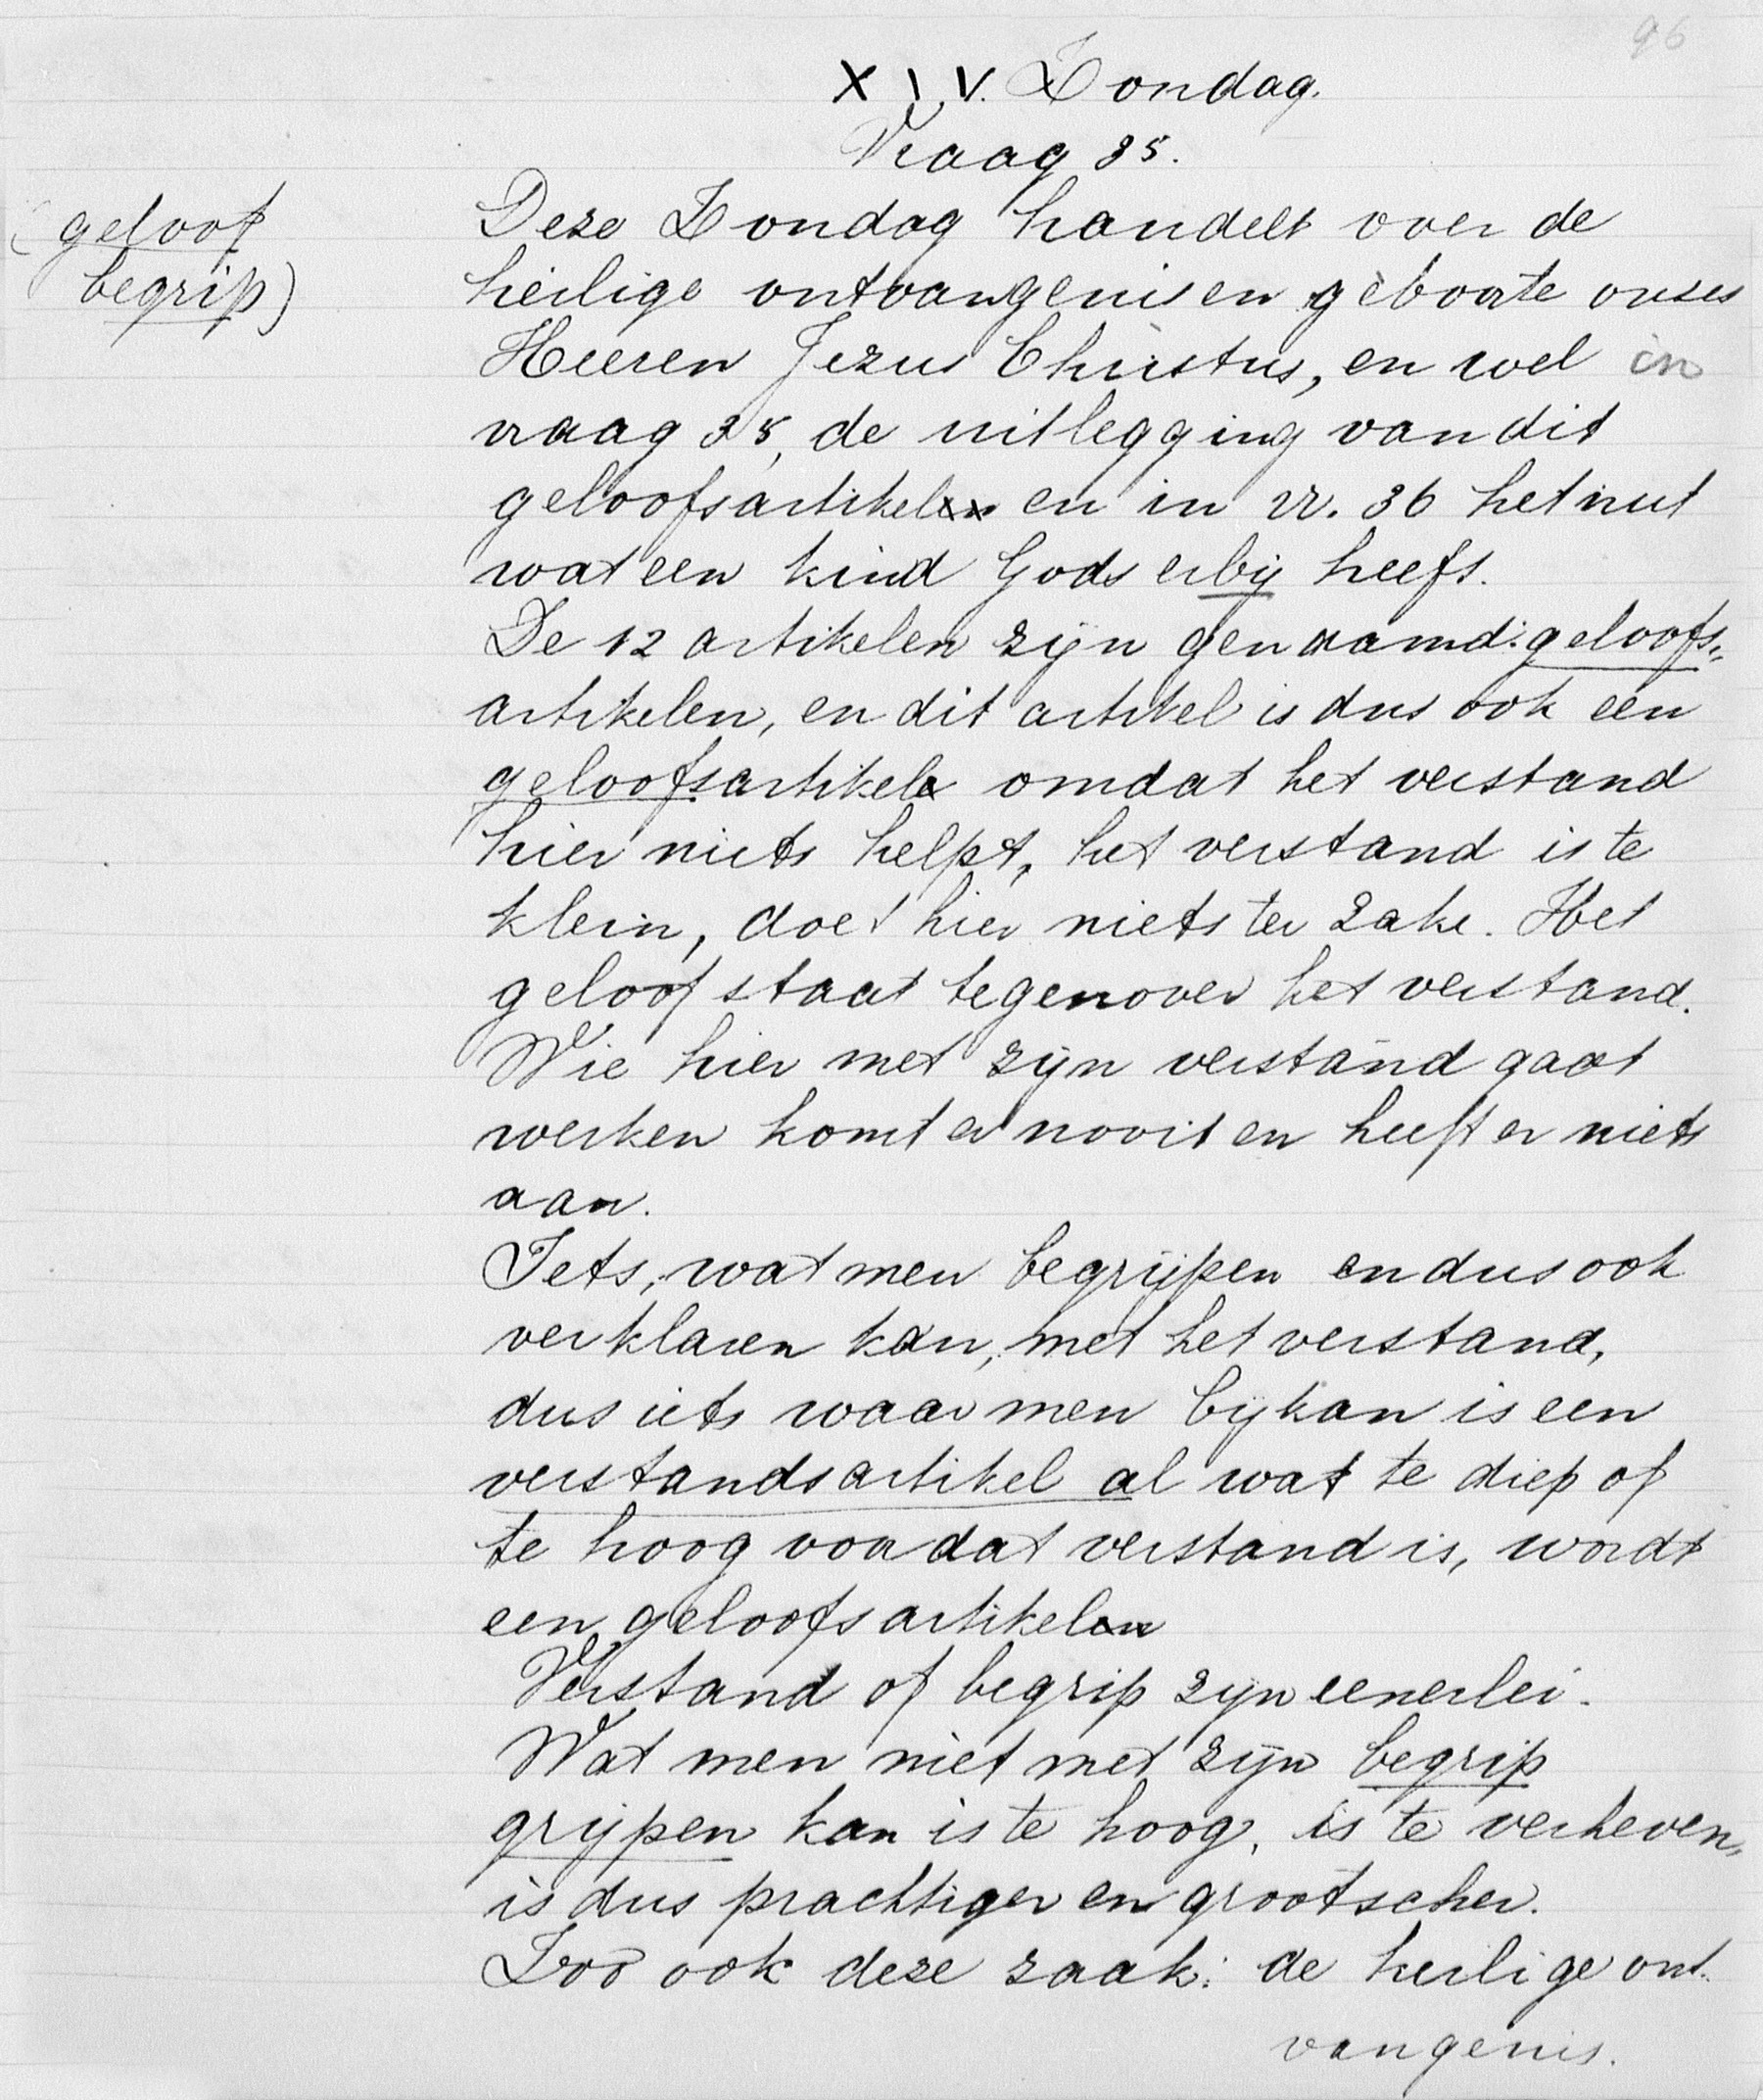 96
XIV. Zondag.
Vraag 35.
(geloof
begrip)
Deze Zondag handelt over de
heilige ontvangenis en geboorte onzes
Heeren Jezus Christus, en wel in
vraag 35, de uitlegging van dit
geloofsartikel en in vr. 36 het nut
wat een kind Gods erbij heeft.
De 12 artikelen zijn genaamd: geloofs=
artikelen, en dit artikel is dus ook een
geloofsartikel omdat het verstand
hier niets helpt, het verstand is te
klein, doet hier niets ter zake. Het
geloof staat tegenover het verstand.
Wie hier met zijn verstand gaat
werken komt er nooit en heeft er niets
aan.
Iets, wat men begrijpen en dus ook
verklaren kan, met het verstand,
dus iets waar men bij kan is een
verstandsartikel al wat te diep of
te hoog voor dat verstand is, wordt
een geloofsartikel
Verstand of begrip zijn eenerlei.
Wat men niet met zijn begrip
grijpen kan is te hoog, is te verheven,
is dus prachtiger en grootscher.
Zoo ook deze zaak: de heilige ont-
vangenis.